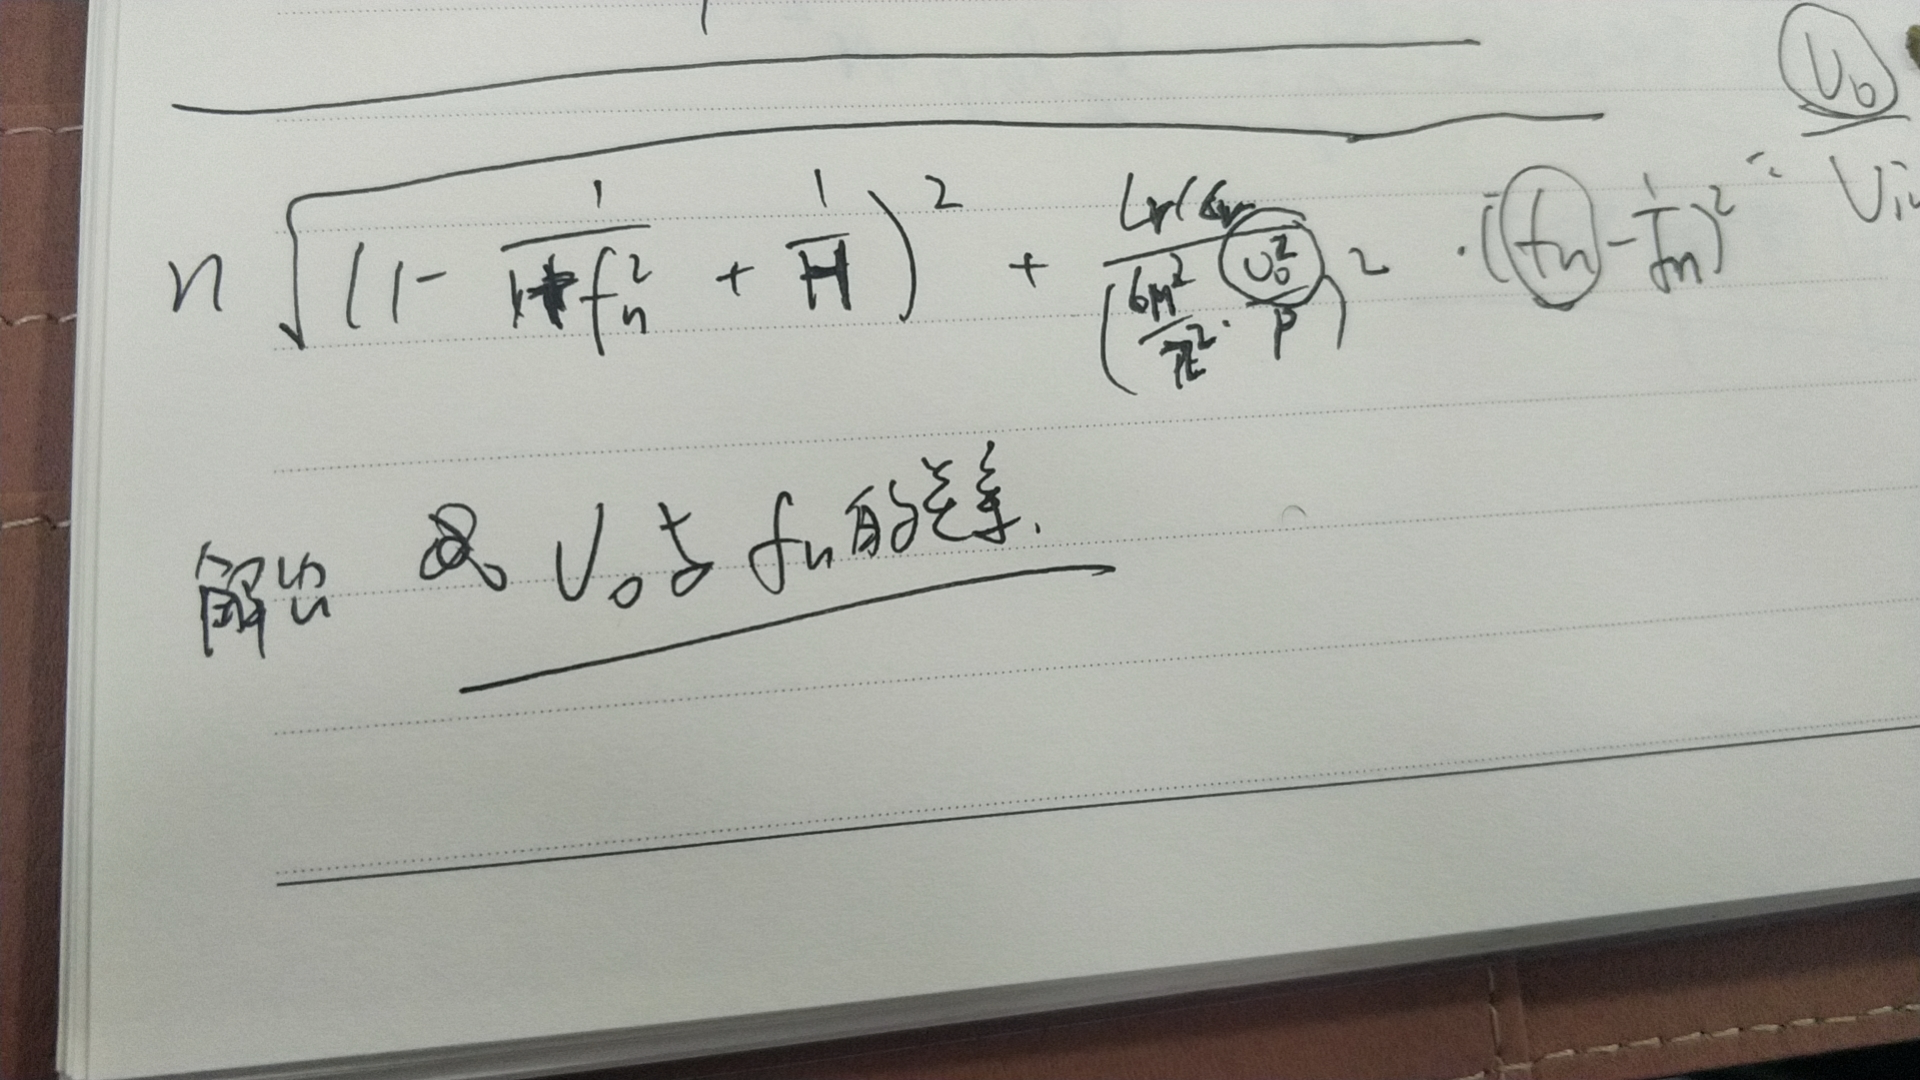 n √((1 - 1/(H f_n^2) + 1/H)^2 + (Lr/Cr)/(6n^2/π^2 · U_0^2/P)^2 · (f_n - 1/f_n)^2) = U_0/U_in
解出 U_0 与 f_n 的关系.